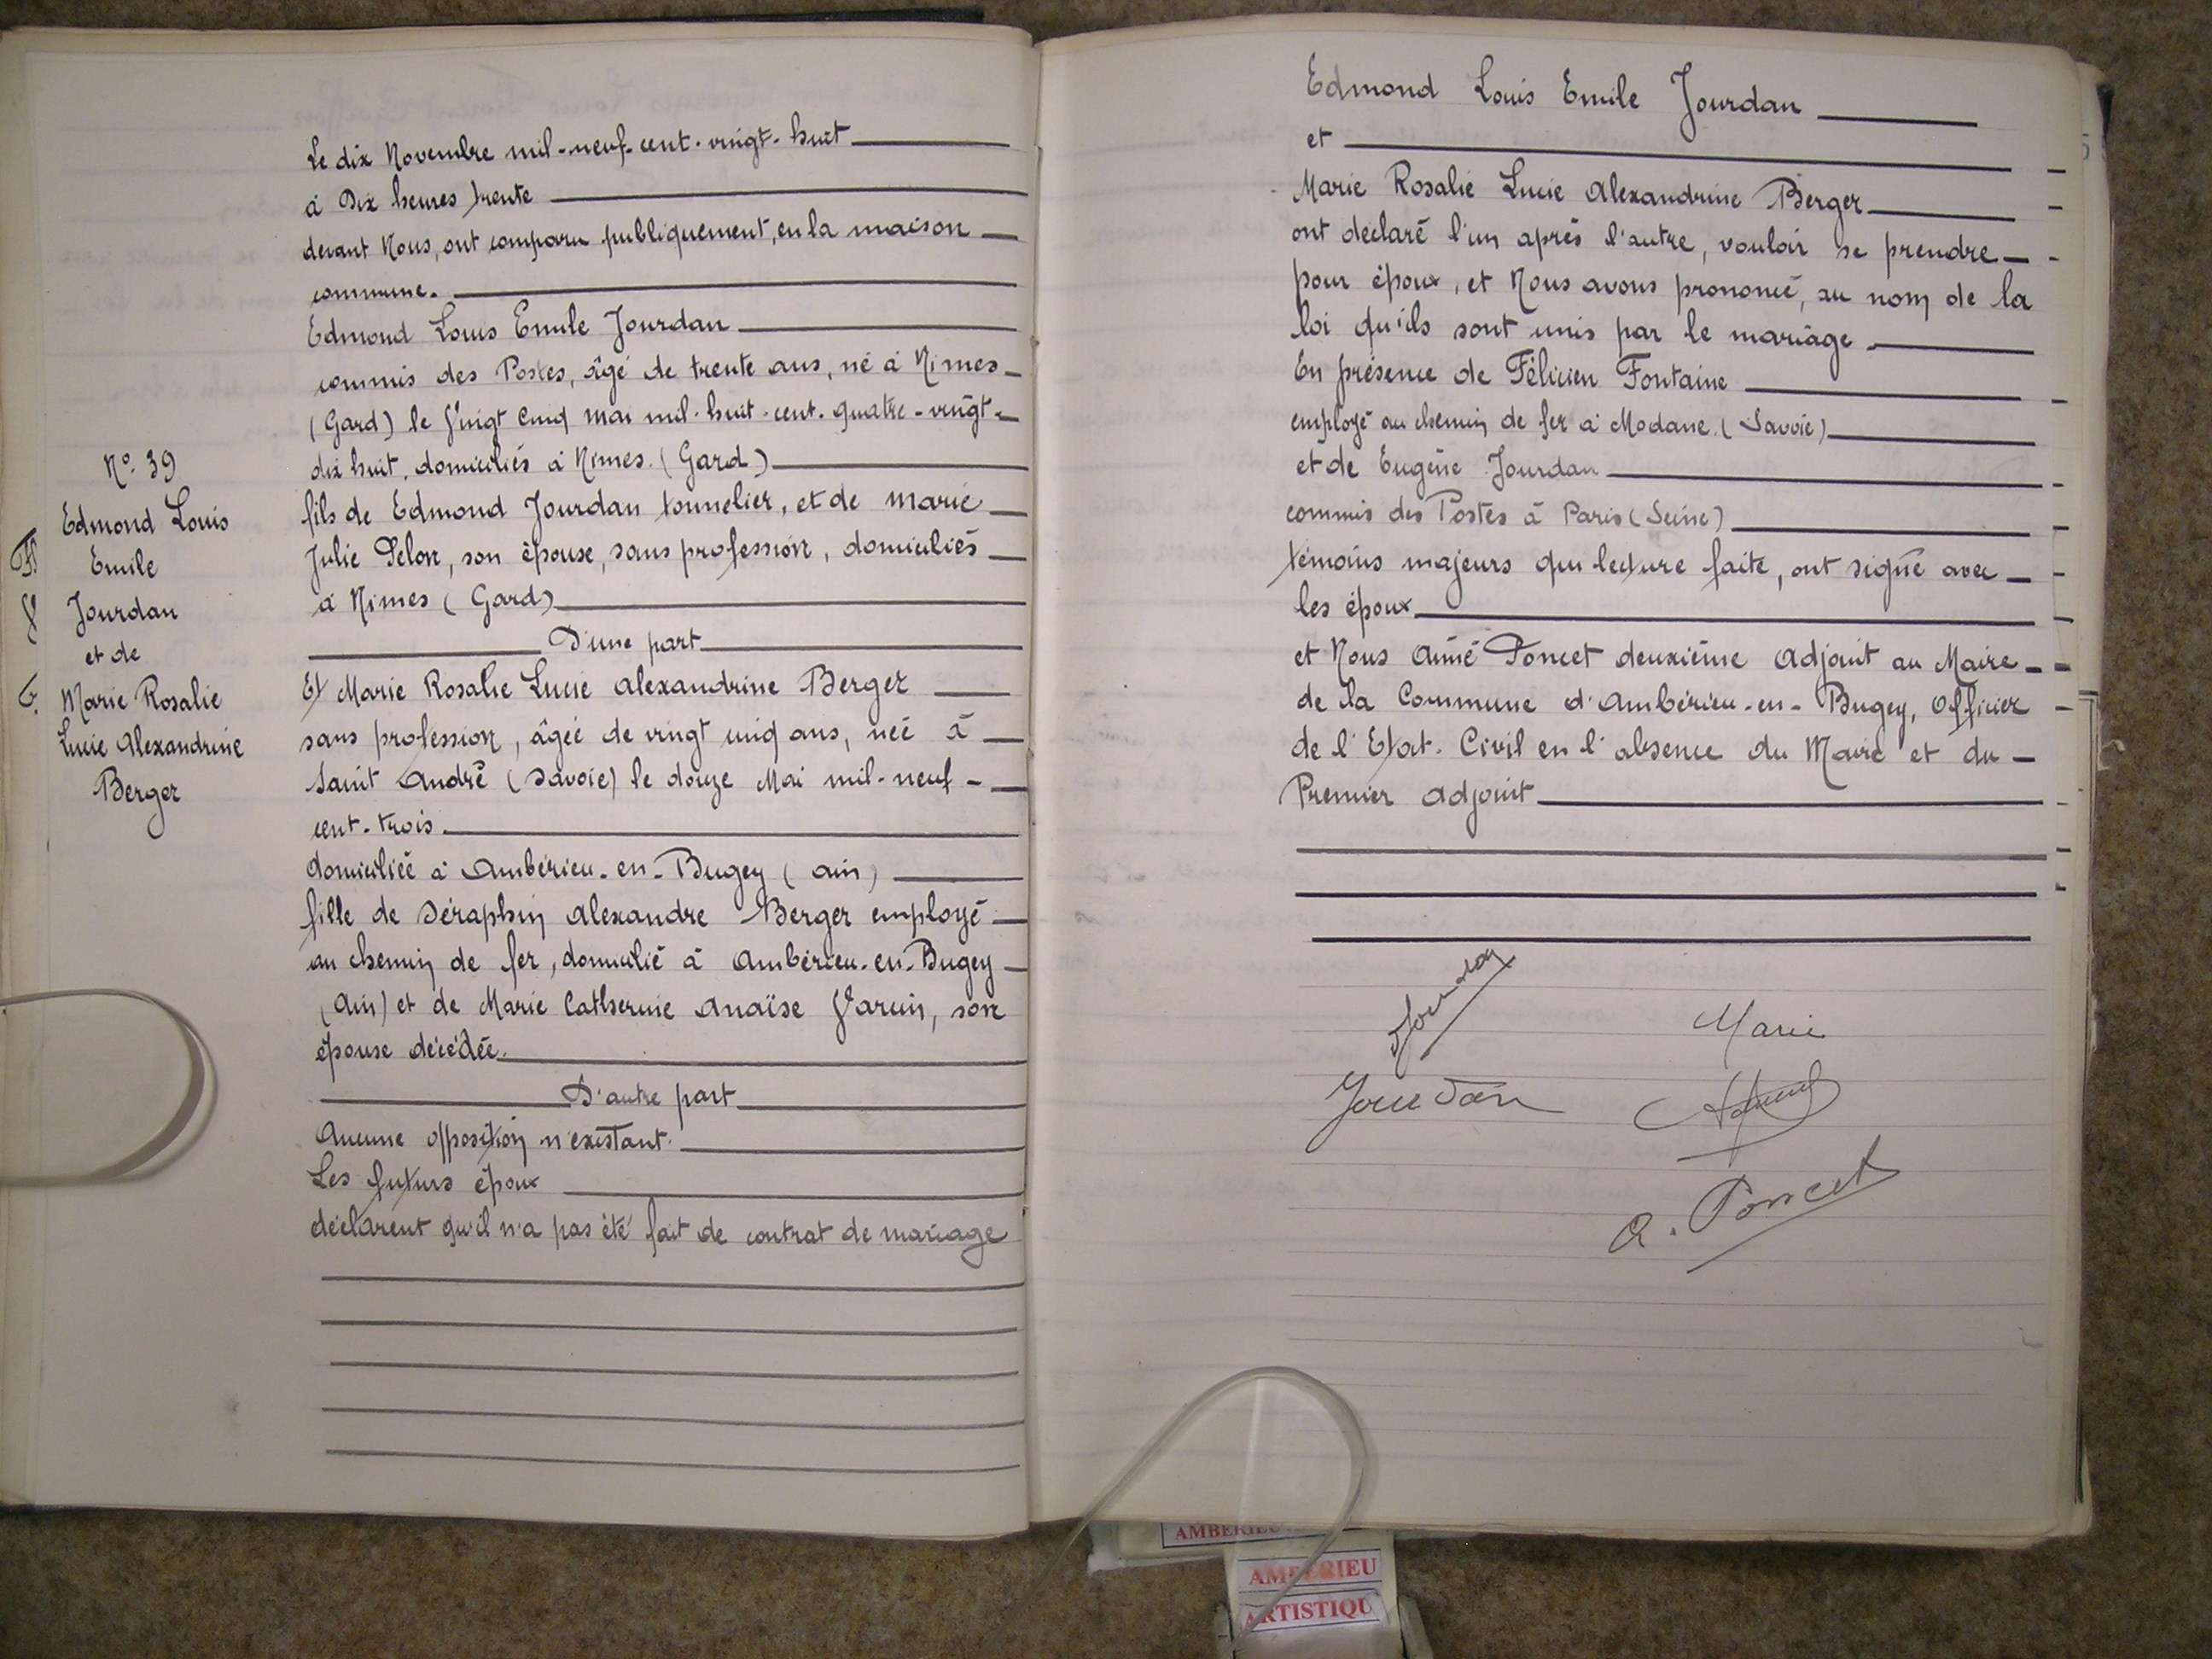 Le dix Novembre mil-neuf-cent-vingt-huit
à Dix heures trente
devant Nous, ont comparu publiquement, en la maison
commune.
Edmond Louis Emile Jourdan
commis des Postes, âgé de trente ans, né à Nimes
(Gard) le Vingt Cinq mai mil-huit-cent-quatre-vingt-
dix huit, domiciliés à Nimes. (Gard)
fils de Edmond Jourdan tonnelier, et de Marie
Julie Delon, son épouse, sans profession, domiciliés
à Nimes (Gard)
D'une part
Et Marie Rosalie Lucie Alexandrine Berger
sans profession, âgée de vingt cinq ans, née à
Saint André (Savoie) le douze Mai mil-neuf-
cent-trois.
domiciliée à Ambérieu-en-Bugey (Ain)
fille de Séraphin Alexandre Berger employé
au chemin de fer, domicilié à Ambérieu-en-Bugey
(Ain) et de Marie Catherine Anaïse Varcin, son
épouse décédée.
D'autre part
Aucune opposition n'existant.
Les futurs époux
déclarent qu'il n'a pas été fait de contrat de mariage
No. 39
Edmond Louis
Emile
Jourdan
et de
Marie Rosalie
Lucie Alexandrine
Berger
Edmond Louis Emile Jourdan
et
Marie Rosalie Lucie Alexandrine Berger
ont déclaré l'un après l'autre, vouloir se prendre
pour époux, et Nous avons prononcé, au nom de la
loi qu'ils sont unis par le mariage.
En présence de Félicien Fontaine
employé au chemin de fer à Modane. (Savoie)
et de Eugène Jourdan
commis des Postes à Paris (Seine)
témoins majeurs qui lecture faite, ont signé avec
les époux
et Nous Aimé Poncet deuxième Adjoint au Maire
de la Commune d'Ambérieu-en-Bugey, Officier
de l'Etat-Civil en l'absence du Maire et du
Premier adjoint
Jourdan
Marie
Jourdan
A. Poncet
AMBERIEU
AMBERIEU
ARTISTIQU